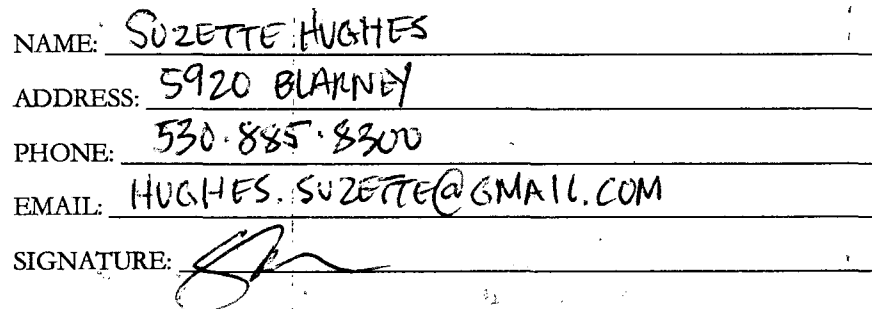 NAME: SUZETTE HUGHES
ADDRESS: 5920 BLARNEY
PHONE: 530.885.8300
EMAIL: HUGHES.SUZETTE@GMAIL.COM
SIGNATURE: